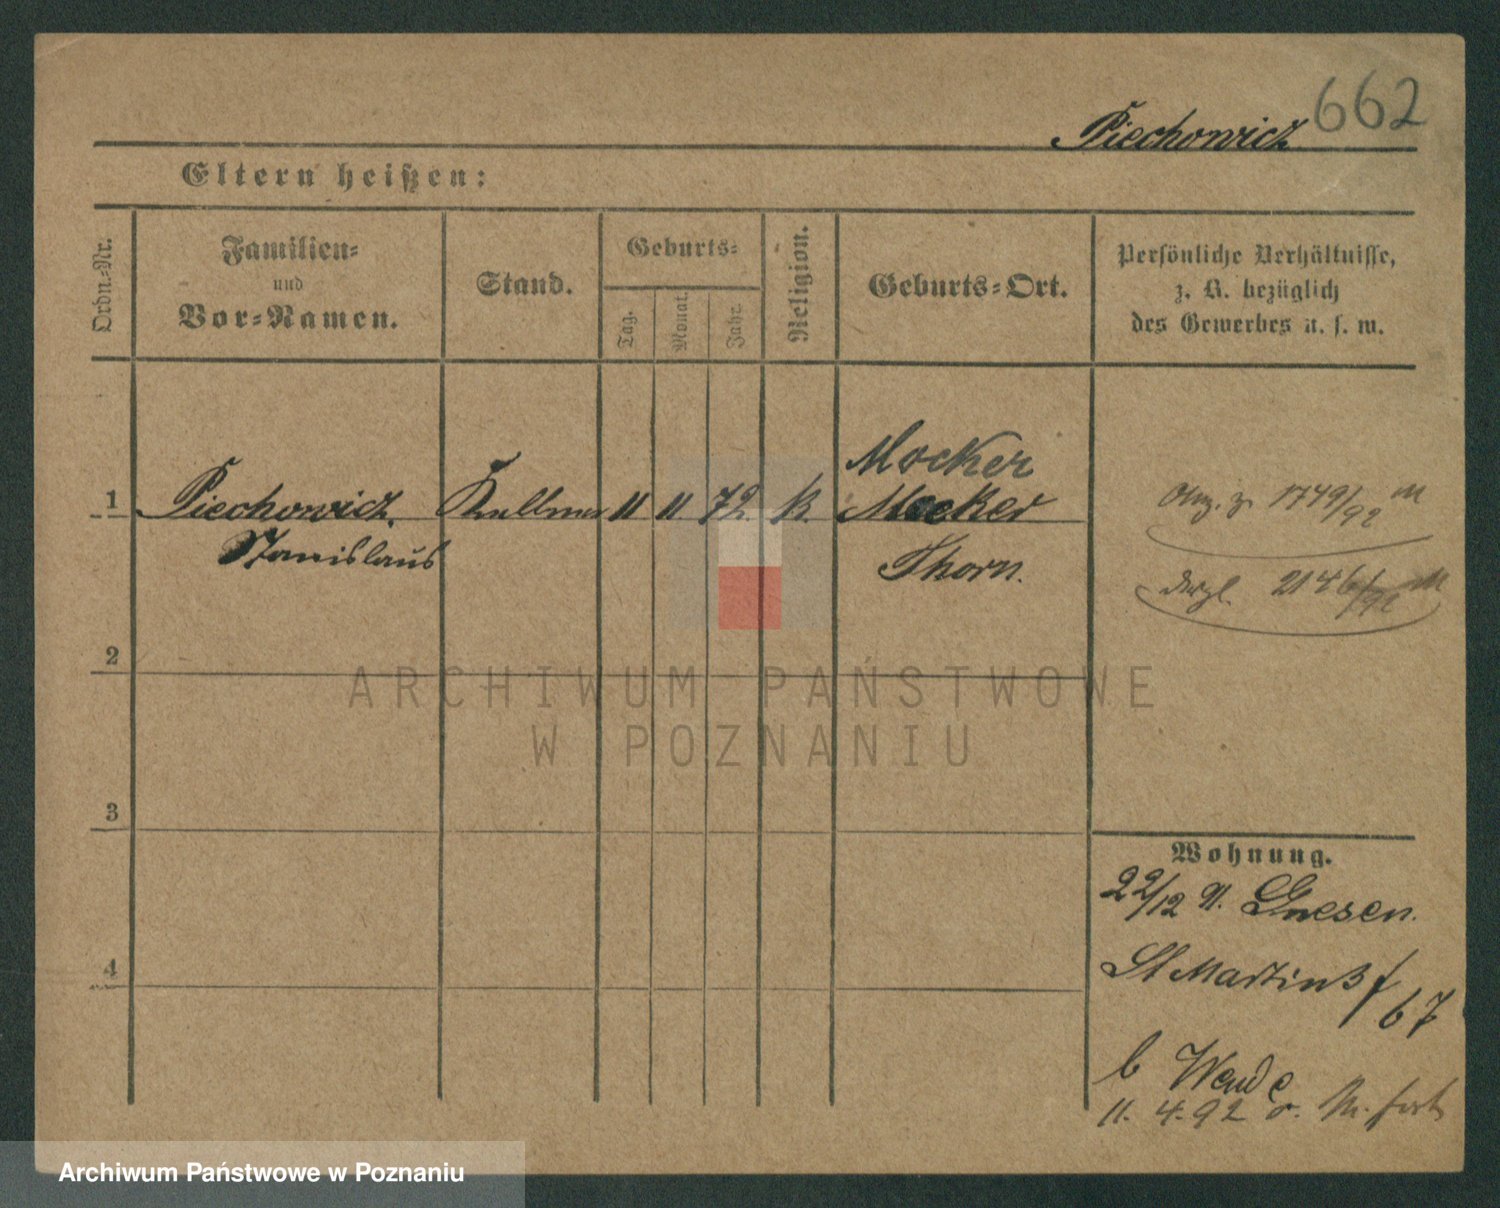 662
Piechowicz
Eltern heißen:
Ordn.-Nr.
Familien-
und
Vor-Namen.
Stand.
Geburts-
Tag.
Monat.
Jahr.
Religion.
Geburts-Ort.
Persönliche Verhältnisse,
z. B. bezüglich
des Gewerbes u. s. w.
1
Piechowicz
Stanislaus
Kellner
11
11
72.
k.
Mocker
Mocker
Thorn.
1749/92
2146/92
2
3
4
Wohnung.
22/12 91. Gnesen.
St Martinstr
67
b Wende
11. 4. 92
ARCHIWUM PAŃSTWOWE
W POZNANIU
Archiwum Państwowe w Poznaniu